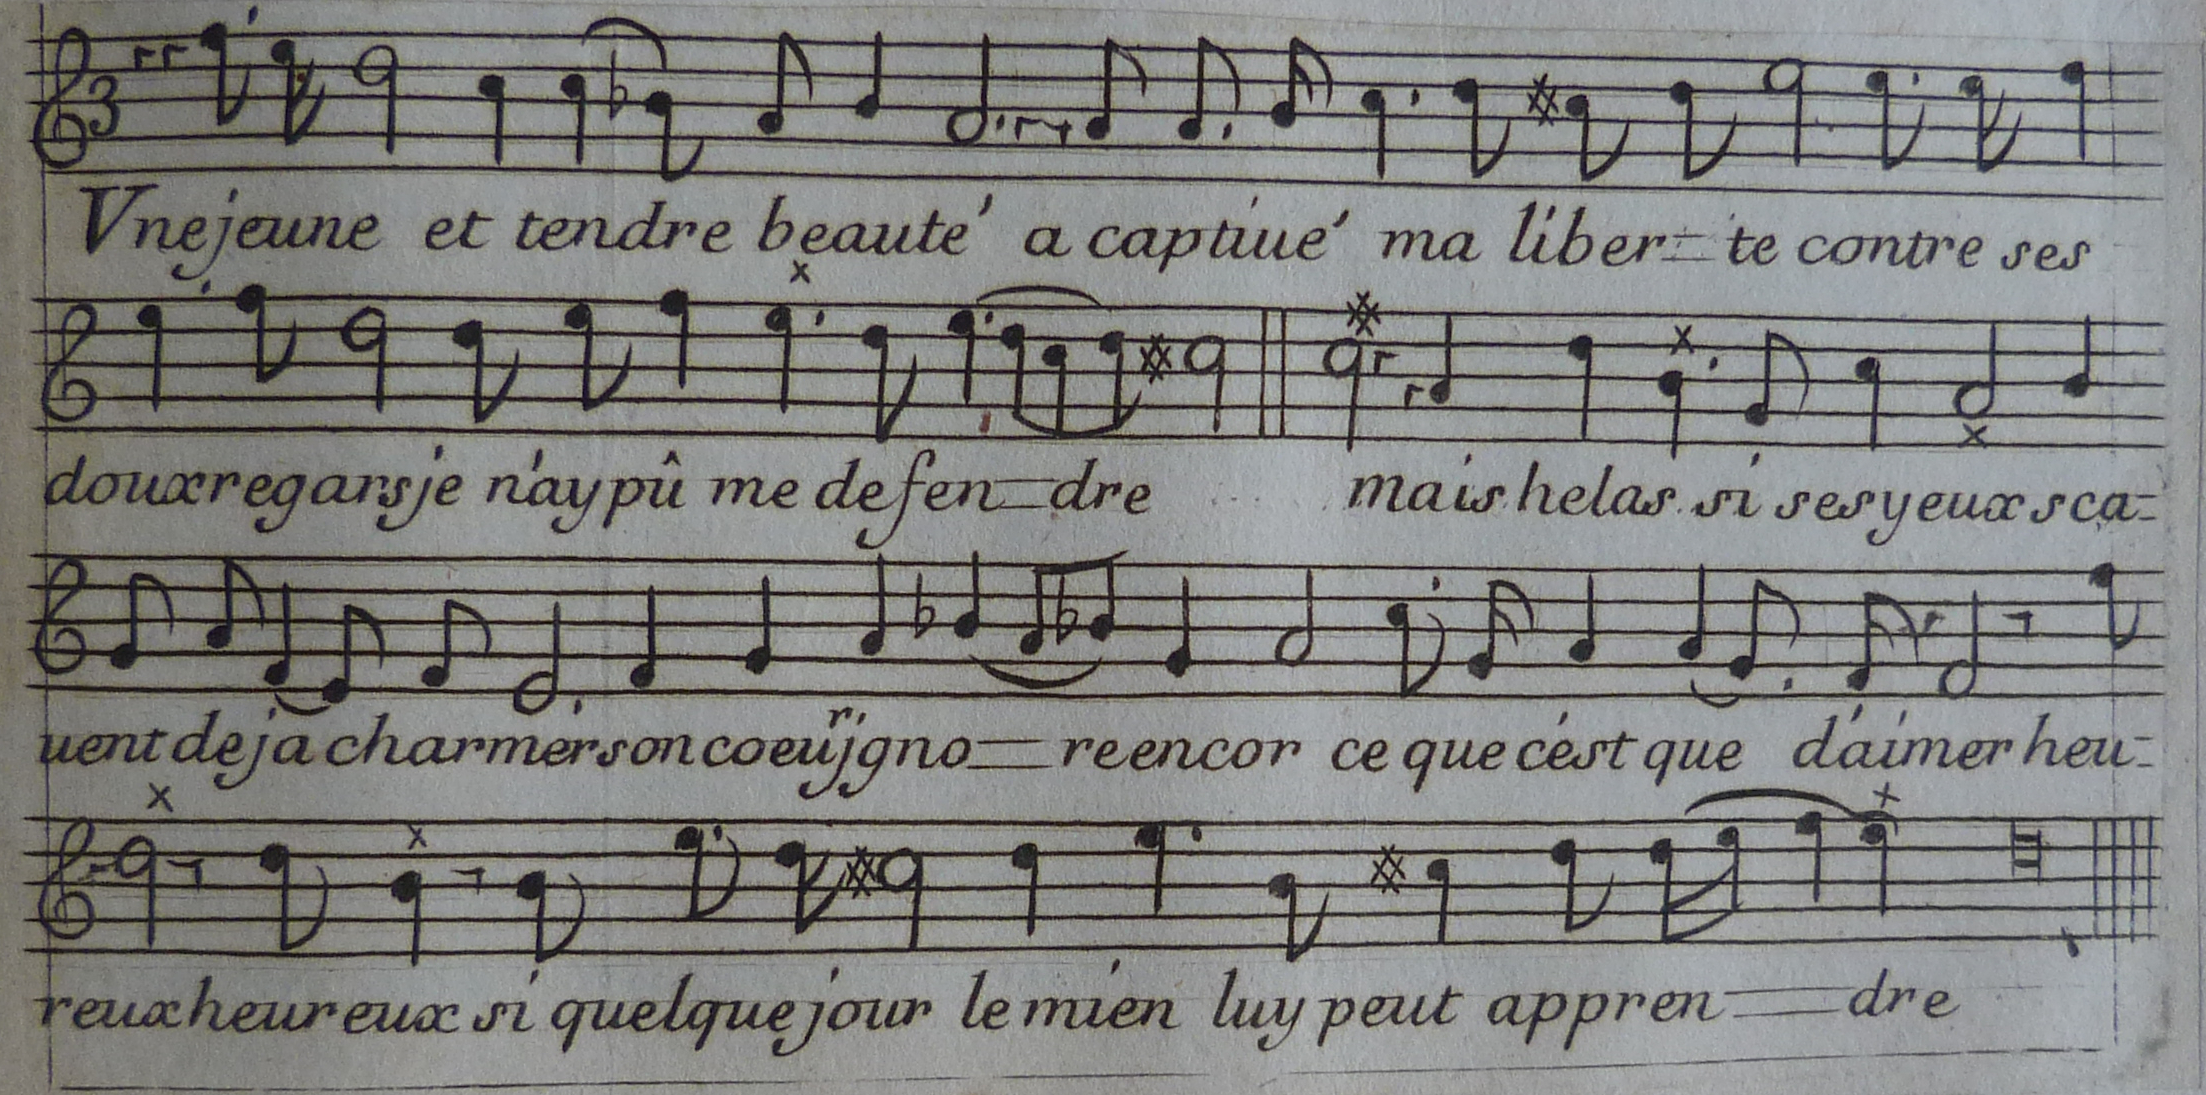 Vne jeune et tendre beauté a captiué ma liber=te contre ses
doux regars je n'ay pû me defen=dre mais helas si ses yeux sca=
uent deja charmer son coeur jgno=re encor ce que c'est que d'aimer heu=
reux heureux si quelque jour le mien luy peut appren=dre